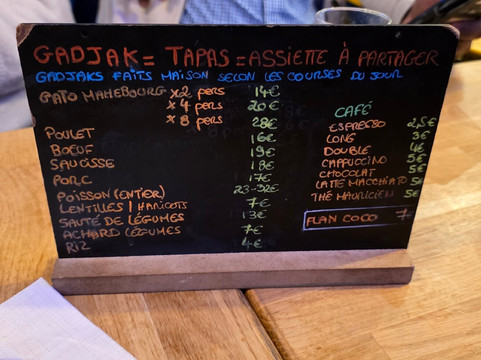 GADJAK = TAPAS = ASSIETTE À PARTAGER
GADJAKS FAITS MAISON SELON LES COURSES DU JOUR
GATO MAHEBOURG x2 pers 14€
x 4 pers 20€
x 8 pers 28€
POULET 16€
BOEUF 19€
SAUCISSE 18€
PORC 17€
POISSON (ENTIER) 23-32€
LENTILLES / HARICOTS 7€
SAUTÉ DE LÉGUMES 13€
ACHARD LÉGUMES 7€
RIZ 4€
CAFÉ
ESPRESSO 2,5€
LONG 3€
DOUBLE 4€
CAPPUCCINO 5€
CHOCOLAT 5€
LATTE MACCHIATO 5€
THÉ MAURICIEN 5€
FLAN COCO 7€